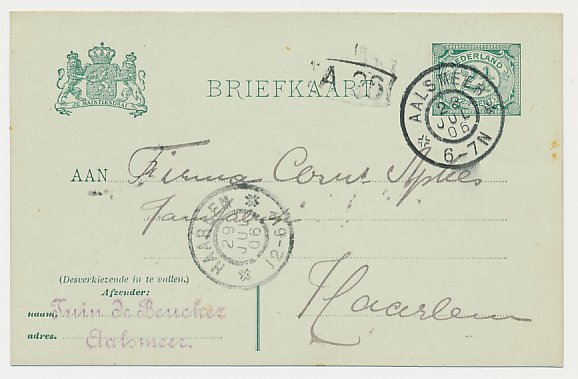 JE MAINTIENDRAI
BRIEFKAART
A 26
NEDERLAND
AALSMEER
28
JUL
06
6-7N
AAN Firma
HAARLEM
29
JUL
06
12-9V
Haarlem
(Desverkiezende in te vullen.)
Afzender:
naam, Tuin de Beucker
adres. Aalsmeer.